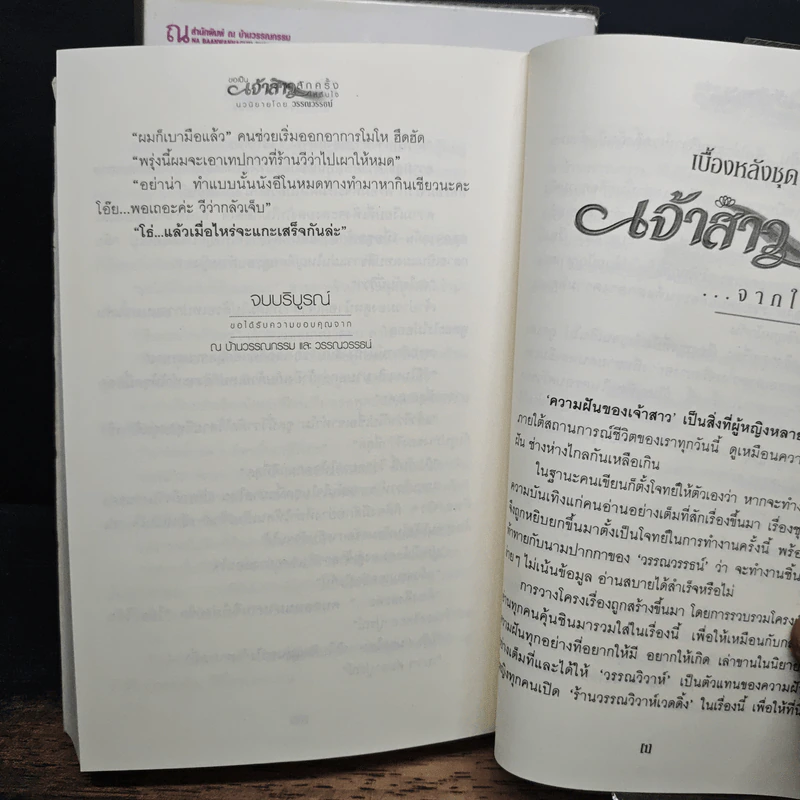 ณ สำนักพิมพ์ ณ บ้านวรรณกรรม
ขอเป็น
เจ้าสาวสักครั้ง
นวนิยายโดย วรรณวรรธน์
“ผมก็เบามือแล้ว” คนช่วยเริ่มออกอาการโมโห ฮึดฮัด
“พรุ่งนี้ผมจะเอาเทปกาวที่ร้านวีว่าไปเผาให้หมด”
“อย่าน่า ทำแบบนั้นนังอีโนหมดทางทำมาหากินเชียวนะคะ
โอ๊ย...พอเถอะค่ะ วีว่ากลัวเจ็บ”
“โธ่...แล้วเมื่อไหร่จะแกะเสร็จกันล่ะ”
จบบริบูรณ์
ขอได้รับความขอบคุณจาก
ณ บ้านวรรณกรรม และ วรรณวรรธน์
เบื้องหลังชุด
เจ้าสาว
...จากใ
‘ความฝันของเจ้าสาว’ เป็นสิ่งที่ผู้หญิงหลาย
ภายใต้สถานการณ์ชีวิตของเราทุกวันนี้ ดูเหมือนควา
ฝัน ช่างห่างไกลกันเหลือเกิน
ในฐานะคนเขียนก็ตั้งโจทย์ให้ตัวเองว่า หากจะทำง
ความบันเทิงแก่คนอ่านอย่างเต็มที่สักเรื่องขึ้นมา เรื่องชุ
จึงถูกหยิบยกขึ้นมาตั้งเป็นโจทย์ในการทำงานครั้งนี้ พร้อ
ท้าทายกับนามปากกาของ ‘วรรณวรรธน์’ ว่า จะทำงานชิ้น
ง่ายๆ ไม่เน้นข้อมูล อ่านสบายได้สำเร็จหรือไม่
การวางโครงเรื่องถูกสร้างขึ้นมา โดยการรวบรวมโครงเ
งานทุกคนคุ้นชินมารวมใส่ในเรื่องนี้ เพื่อให้เหมือนกับก
ความฝันทุกอย่างที่อยากให้มี อยากให้เกิด เล่าขานในนิยาย
ย่างเต็มที่และได้ให้ ‘วรรณวิวาห์’ เป็นตัวแทนของความฝั
หญิงทุกคนเปิด ‘ร้านวรรณวิวาห์เวดดิ้ง’ ในเรื่องนี้ เพื่อให้ที่นี่
[1]